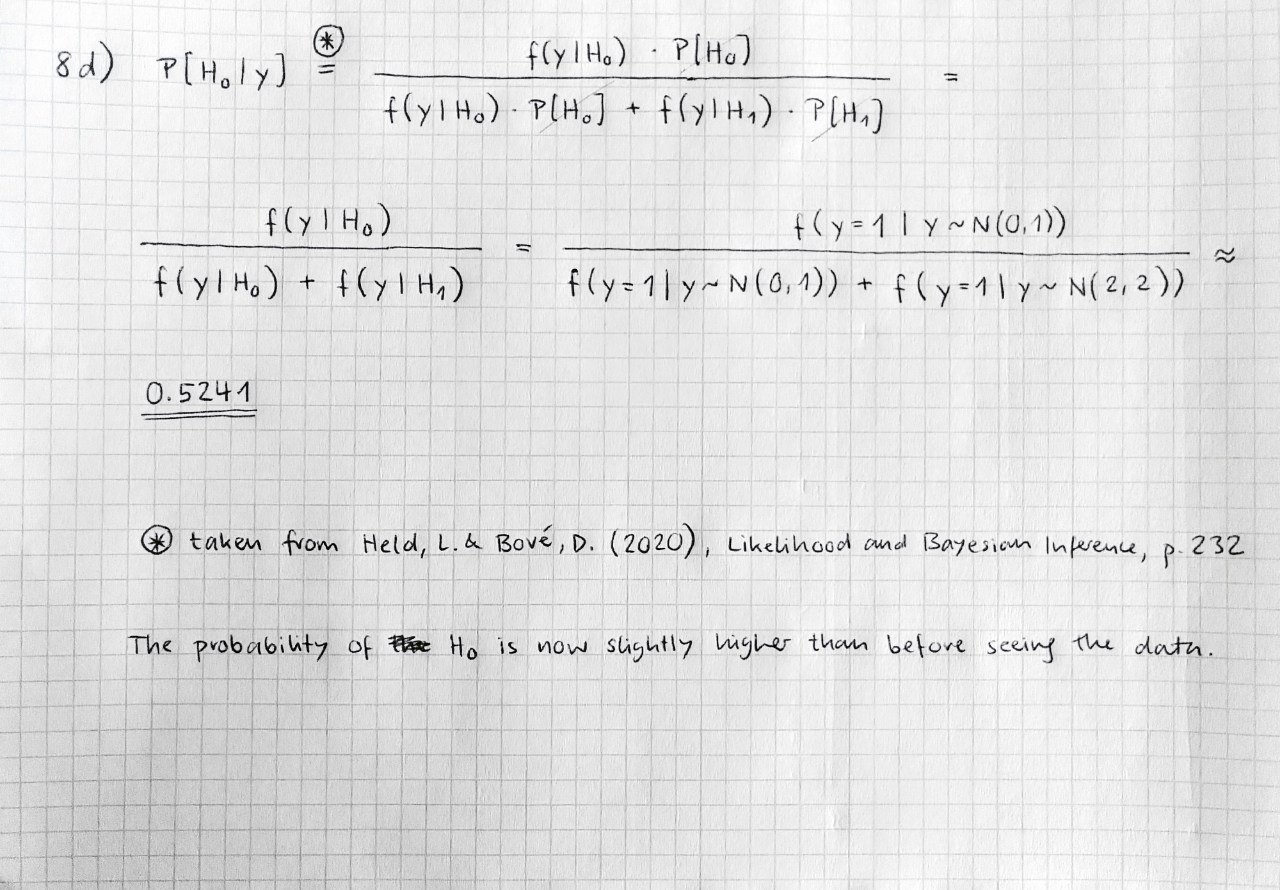 8d) P[H₀|y] ⊛= f(y|H₀) · P[H₀] / f(y|H₀) · P[H₀] + f(y|H₁) · P[H₁] =
f(y|H₀) / f(y|H₀) + f(y|H₁) = f(y=1|y~N(0,1)) / f(y=1|y~N(0,1)) + f(y=1|y~N(2,2)) ≈
0.5241
⊛ taken from Held, L. & Bové, D. (2020), Likelihood and Bayesian Inference, p. 232
The probability of H₀ is now slightly higher than before seeing the data.